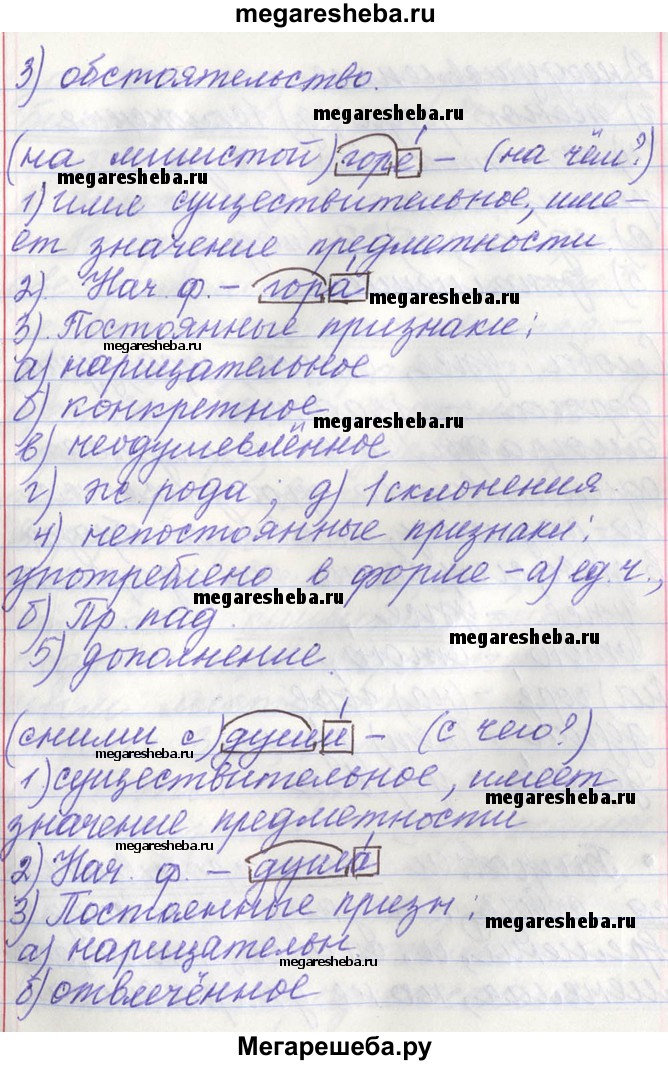 megaresheba.ru
3) обстоятельство.
megaresheba.ru
(на мшистой) горе - (на чём?)
megaresheba.ru
1) Имя существительное, име-
ет значение предметности
2). Нач. ф. - гора
megaresheba.ru
3). Постоянные признаки:
megaresheba.ru
а) нарицательное
б) конкретное
megaresheba.ru
в) неодушевлённое
г) ж. рода; д) 1 склонения
4) непостоянные признаки:
употреблено в форме - а) ед. ч.,
megaresheba.ru
б) Пр. пад.
megaresheba.ru
5) дополнение.
(сними с) души - (с чего?)
megaresheba.ru
1) существительное, имеет
megaresheba.ru
значение предметности
megaresheba.ru
2) Нач. ф. - душа
3) Постоянные призн:
megaresheba.ru
а) нарицательн.
megaresheba.ru
б) отвлечённое
Мегарешеба.ру